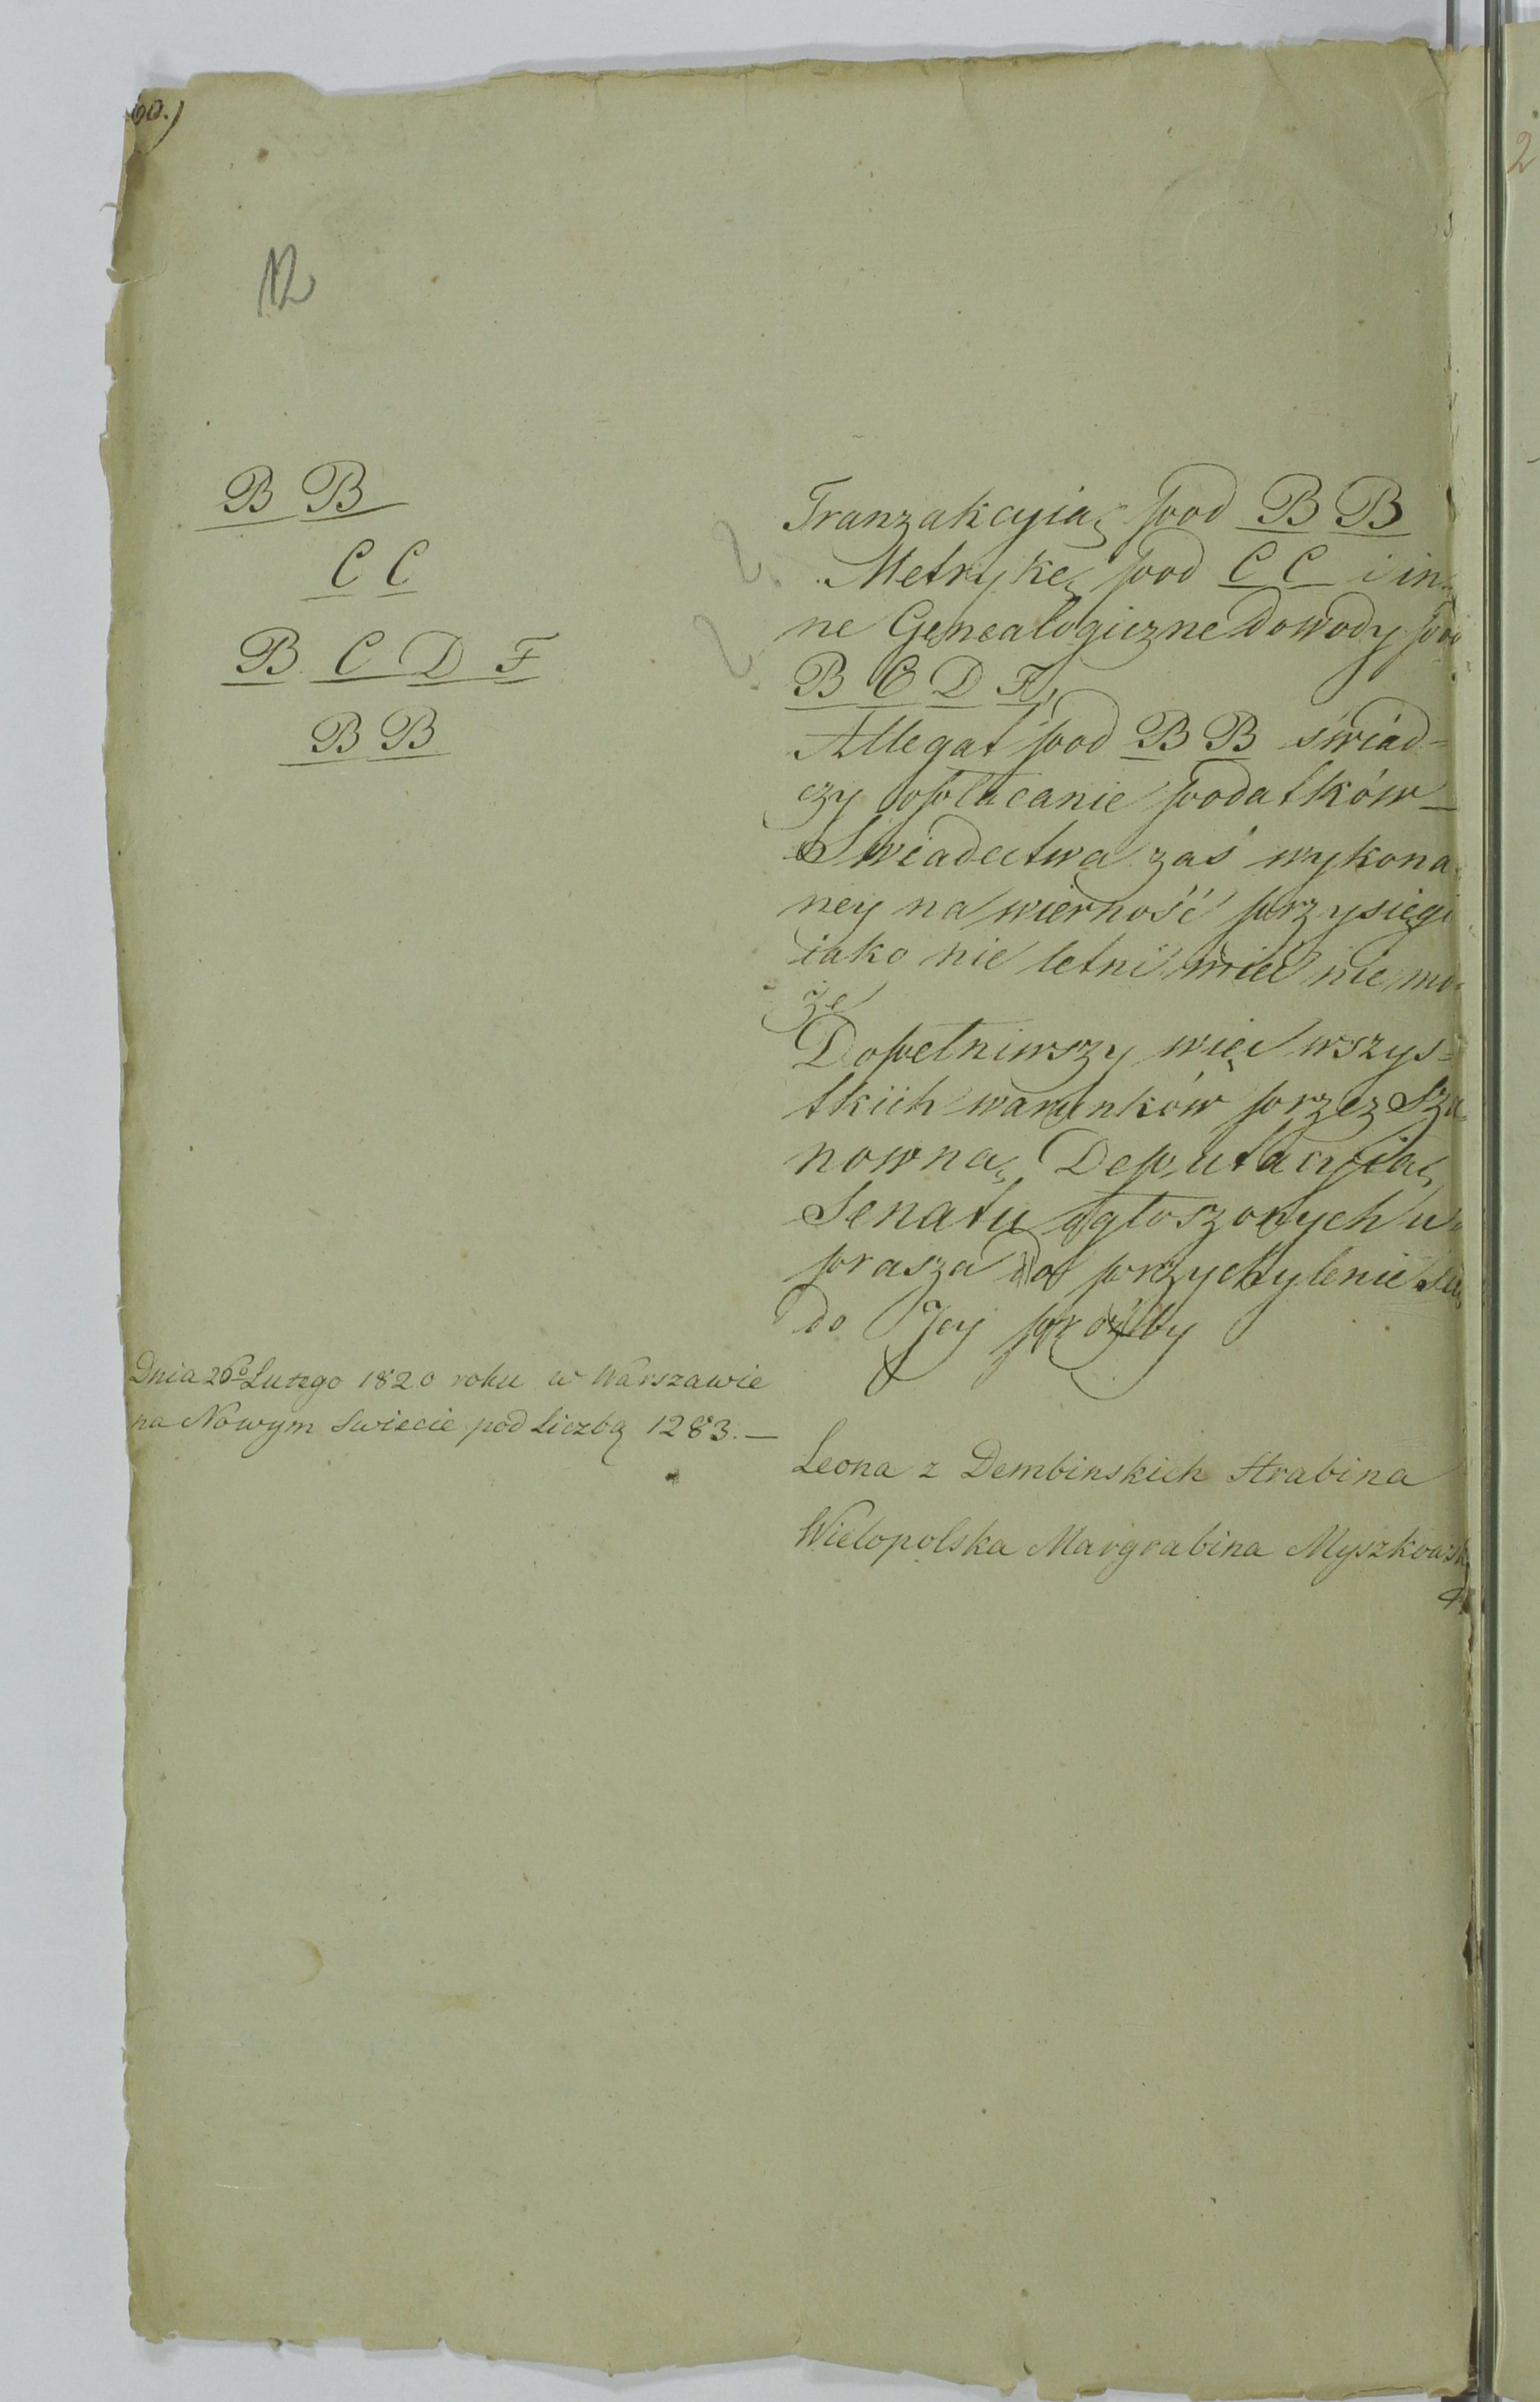 60.)
12
B B
C C
B C D F
B B
Tranzakcyią pod B B
Metrykę pod C C i in-
ne Genealogiczne Dowody pod
B C D F,
Allegat pod B B świad=
czy opłacanie podatków –
Swiadectwa zaś wykona-
ney na wierność przysięgi
iako nie letni mieć nie mo-
że
Dopełniwszy więc wszys=
tkich warunków przez Sza-
nowną Deputacyią
Senatu ogłoszonych u-
prasza o przychylenie się
do Jey prozby
Dnia 26o Lutego 1820 roku w Warszawie
na Nowym Swiecie pod Liczbą 1283. —
Leona z Dembinskich Hrabina
Wielopolska Margrabina Myszkowsk
a
2